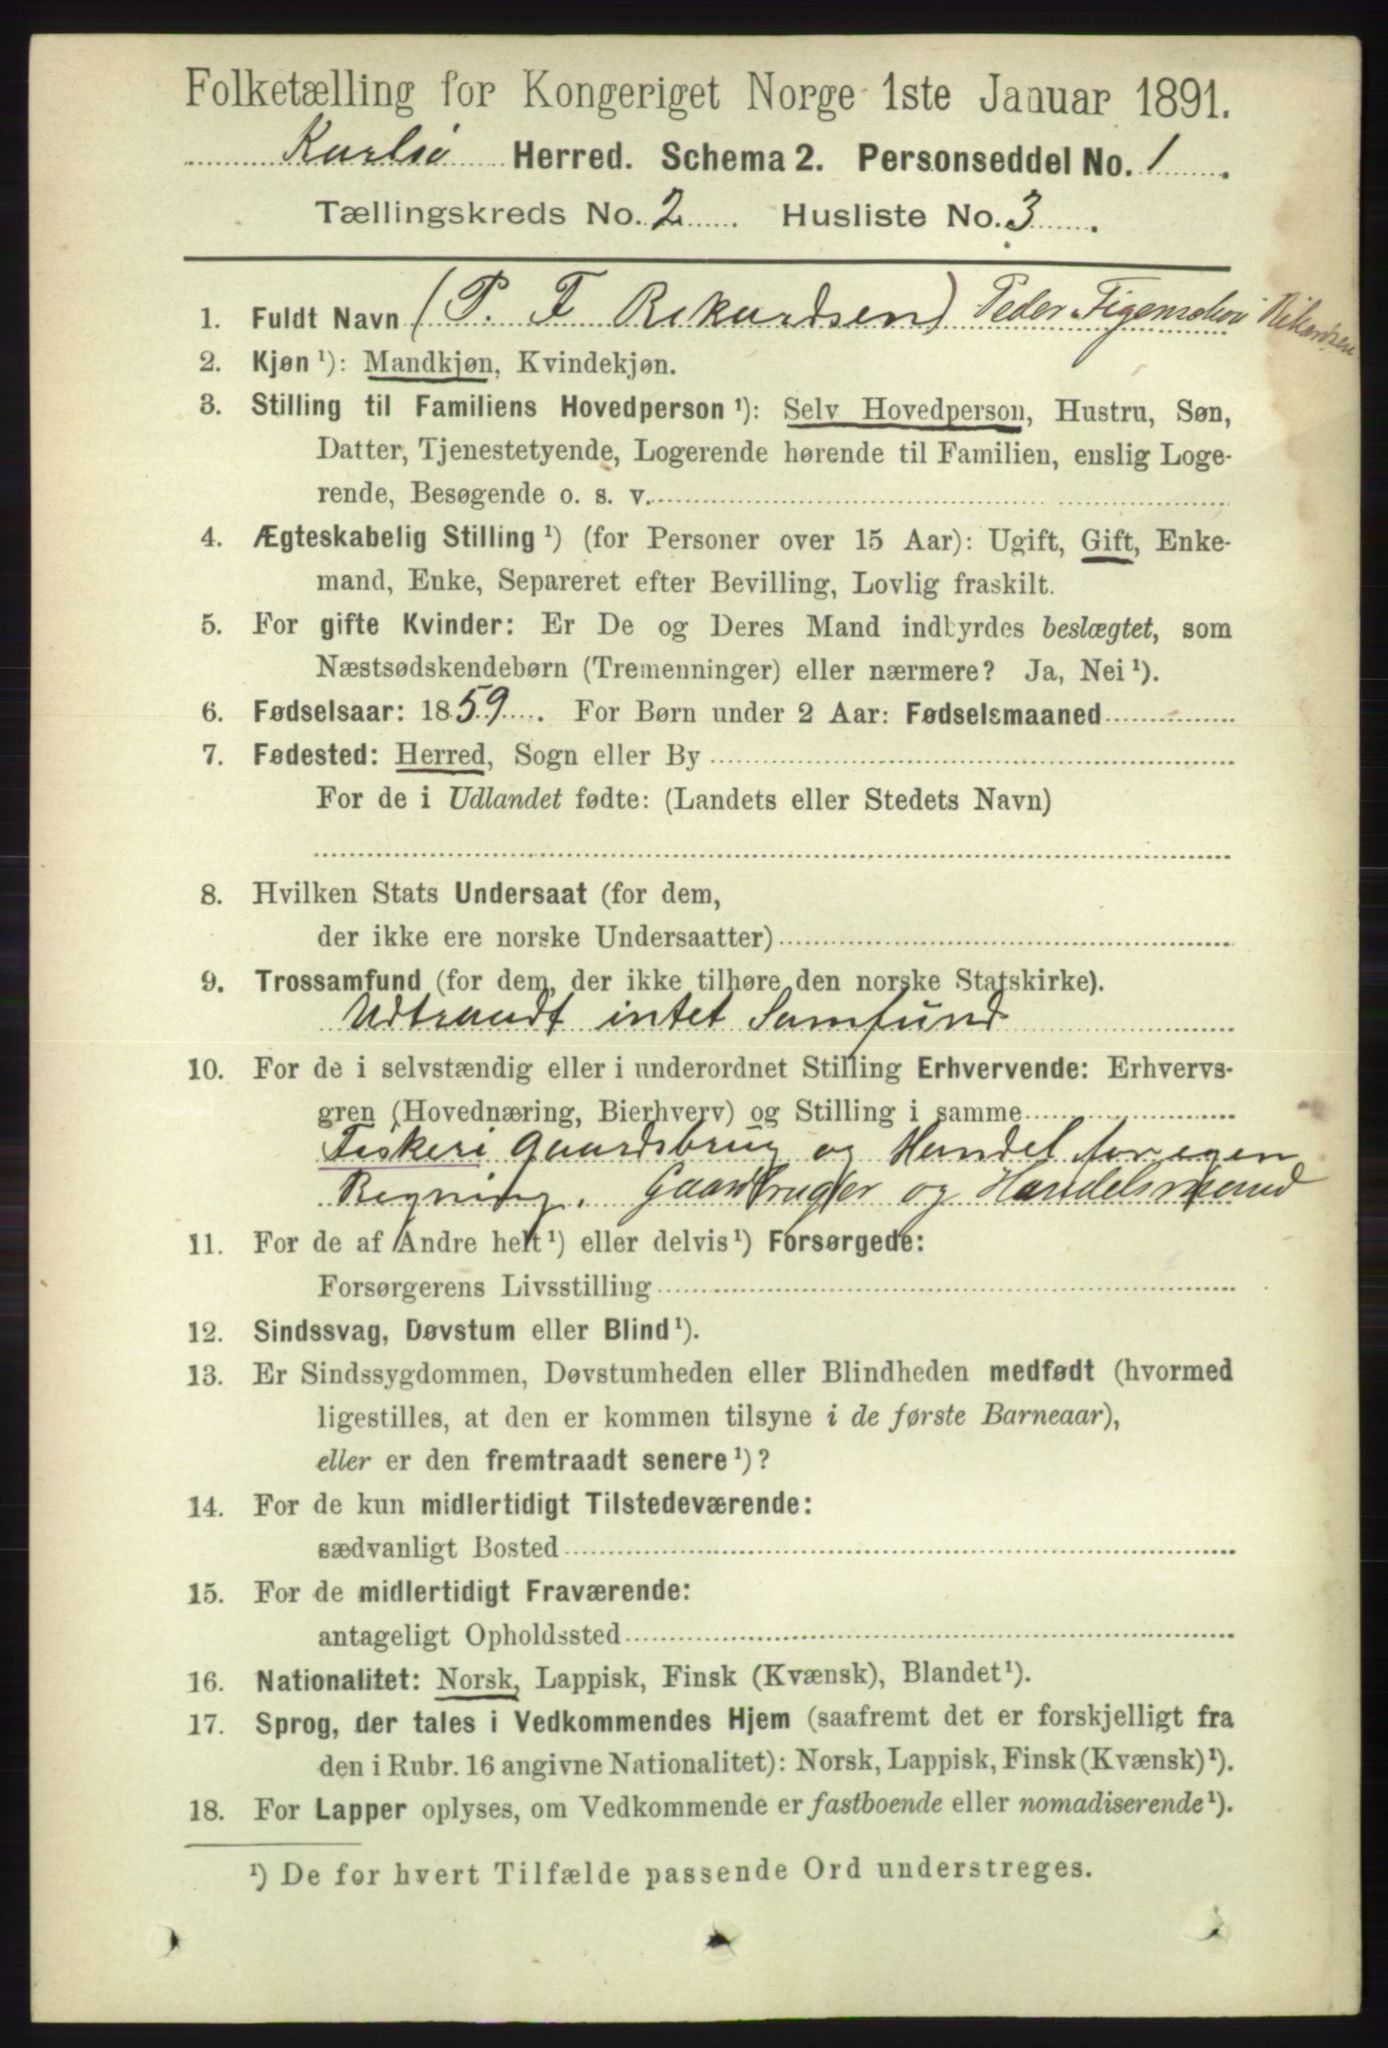 Folketælling for Kongeriget Norge 1ste Januar 1891.
Karlsø Herred. Schema 2. Personseddel No. 1.
Tællingskreds No. 2. Husliste No. 3.
1. Fuldt Navn (P. F Rikardsen) Peder Figenschou Rikardsen
2. Kjøn ¹): Mandkjøn, Kvindekjøn.
3. Stilling til Familiens Hovedperson ¹): Selv Hovedperson, Hustru, Søn,
Datter, Tjenestetyende, Logerende hørende til Familien, enslig Loge-
rende, Besøgende o. s. v.
4. Ægteskabelig Stilling ¹) (for Personer over 15 Aar): Ugift, Gift, Enke-
mand, Enke, Separeret efter Bevilling, Lovlig fraskilt.
5. For gifte Kvinder: Er De og Deres Mand indbyrdes beslægtet, som
Næstsødskendebørn (Tremenninger) eller nærmere? Ja, Nei ¹).
6. Fødselsaar: 1859. For Børn under 2 Aar: Fødselsmaaned
7. Fødested: Herred, Sogn eller By
For de i Udlandet fødte: (Landets eller Stedets Navn)
8. Hvilken Stats Undersaat (for dem,
der ikke ere norske Undersaatter)
9. Trossamfund (for dem, der ikke tilhøre den norske Statskirke).
Udtraadt intet Samfund
10. For de i selvstændig eller i underordnet Stilling Erhvervende: Erhvervs-
gren (Hovednæring, Bierhverv) og Stilling i samme
Fiskeri gaardsbrug og Handel for egen
Regning. Gaardbruger og Handelsmand
11. For de af Andre helt ¹) eller delvis ¹) Forsørgede:
Forsørgerens Livsstilling
12. Sindssvag, Døvstum eller Blind ¹).
13. Er Sindssygdommen, Døvstumheden eller Blindheden medfødt (hvormed
ligestilles, at den er kommen tilsyne i de første Barneaar),
eller er den fremtraadt senere ¹)?
14. For de kun midlertidigt Tilstedeværende:
sædvanligt Bosted
15. For de midlertidigt Fraværende:
antageligt Opholdssted
16. Nationalitet: Norsk, Lappisk, Finsk (Kvænsk), Blandet ¹).
17. Sprog, der tales i Vedkommendes Hjem (saafremt det er forskjelligt fra
den i Rubr. 16 angivne Nationalitet): Norsk, Lappisk, Finsk (Kvænsk) ¹).
18. For Lapper oplyses, om Vedkommende er fastboende eller nomadiserende ¹).
¹) De for hvert Tilfælde passende Ord understreges.